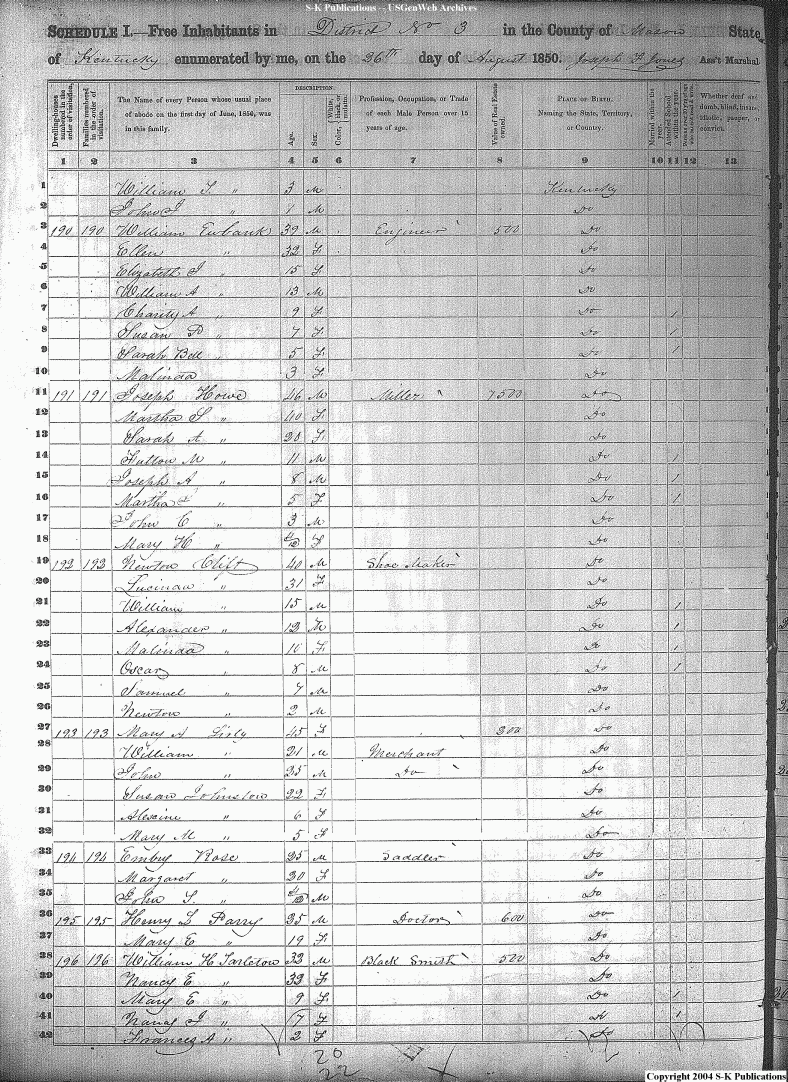 S-K Publications -- USGenWeb Archives
SCHEDULE I.—Free Inhabitants in District No 3 in the County of Mason State
of Kentucky enumerated by me, on the 26th day of August 1850. Joseph F Jones Ass't Marshal
Dwelling-houses numbered in the order of visitation.
Families numbered in the order of visitation.
The Name of every Person whose usual place of abode on the first day of June, 1850, was in this family.
DESCRIPTION.
Age.
Sex.
Color, White, black or mulatto.
Profession, Occupation, or Trade of each Male Person over 15 years of age.
Value of Real Estate owned.
PLACE OF BIRTH. Naming the State, Territory, or Country.
Married within the year.
Attended School within the year.
Whether deaf and dumb, blind, insane, idiotic, pauper, or convict.
1 2 3 4 5 6 7 8 9 10 11 12 13
1 William T. " 3 M Kentucky
2 John " 1 M Do
3 190 190 William Eubank 39 M Engineer 500 Do
4 Ellen " 32 F Do
5 Elizabeth J " 15 F Do
6 William A " 13 M Do
7 Charity A " 9 F Do 1
8 Susan D " 7 F Do 1
9 Sarah Bell " 5 F Do 1
10 Malinda 3 F Do
11 191 191 Joseph Howe 46 M Miller 7500 Do
12 Martha S " 40 F Do
13 Sarah A " 20 F Do
14 Fulton M " 11 M Do 1
15 Joseph A " 8 M Do 1
16 Martha " 5 F Do 1
17 John C " 3 M Do
18 Mary H " F Do
19 192 192 Newton Clift 40 M Shoe Maker Do
20 Lucinda " 31 F Do
21 William " 15 M Do 1
22 Alexander " 12 M Do 1
23 Malinda " 10 F Do 1
24 Oscar " 8 M Do 1
25 Samuel " 7 M Do
26 Newton " 2 M Do
27 193 193 Mary A 45 F 300 Do
28 William " 21 M Merchant Do
29 John " 25 M Do Do
30 Susan Johnston 22 F Do
31 " 6 F Do
32 Mary M " 5 F Do
33 194 194 Embry Rose 25 M Saddler Do
34 Margaret " 20 F Do
35 John " M Do
36 195 195 Henry L Parry 25 M Doctor 600 Do
37 Mary E " 19 F Do
38 196 196 William H Tarleton 32 M Black Smith 500 Do
39 Nancy E " 33 F Do
40 Mary E " 9 F Do 1
41 Nancy J " 7 F Do 1
42 Frances A " 2 F Do
20
22
Copyright 2004 S-K Publications